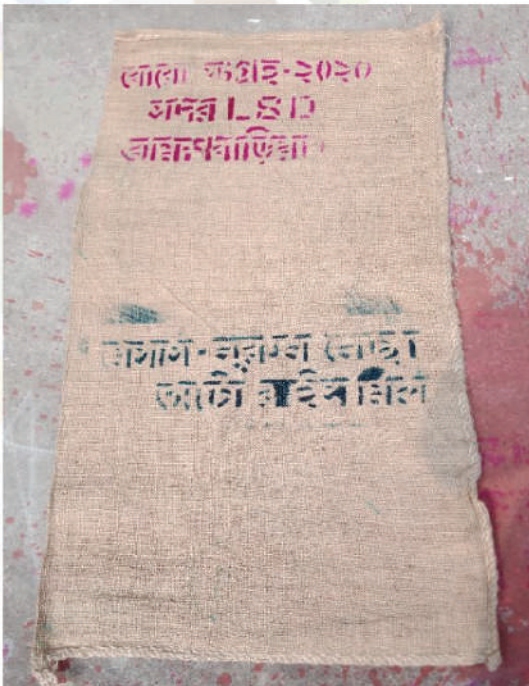 বোরো সংগ্রহ-২০২০
সদর LSD
ব্রাহ্মণবাড়িয়া
মেসার্স-নুরুন্নেছা
অটো রাইস মিল